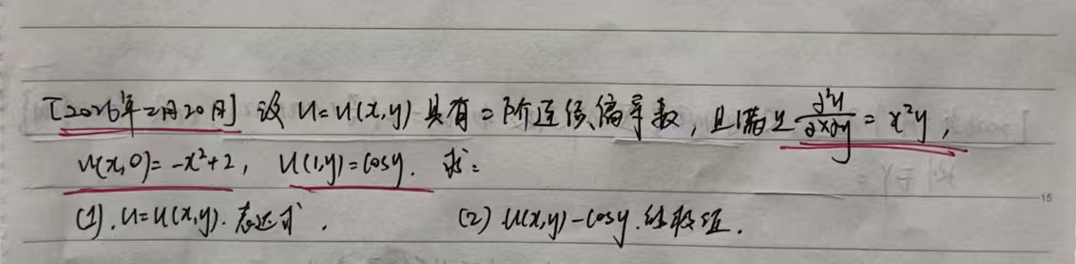 [2026年2月20日] 设 u=u(x,y) 具有二阶连续偏导数, 且满足 ∂²u/∂x∂y = x²y,
u(x,0)=-x²+2, u(1,y)=cosy. 求:
(1). u=u(x,y). 表达式. (2) u(x,y)-cosy. 的极值.
15